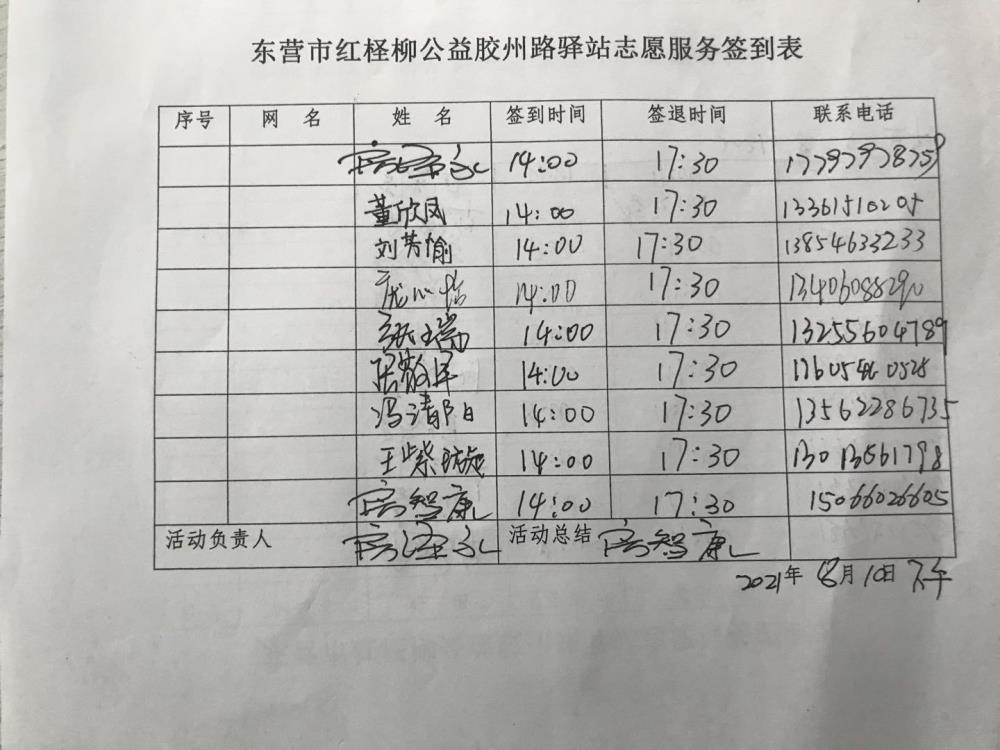 东营市红柽柳公益胶州路驿站志愿服务签到表
序号 网 名 姓 名 签到时间 签退时间 联系电话
房泽永 14:00 17:30
董欣凤 14:00 17:30 13361510205
刘芳愉 14:00 17:30 13854633233
庞心怡 14:00 17:30
14:00 17:30 13255604789
14:00 17:30 17605460528
冯清阳 14:00 17:30 13562286735
王紫璇 14:00 17:30 13013561798
房智康 14:00 17:30 15066026605
活动负责人 房泽永 活动总结 房智康
2021年 8月10日 下午